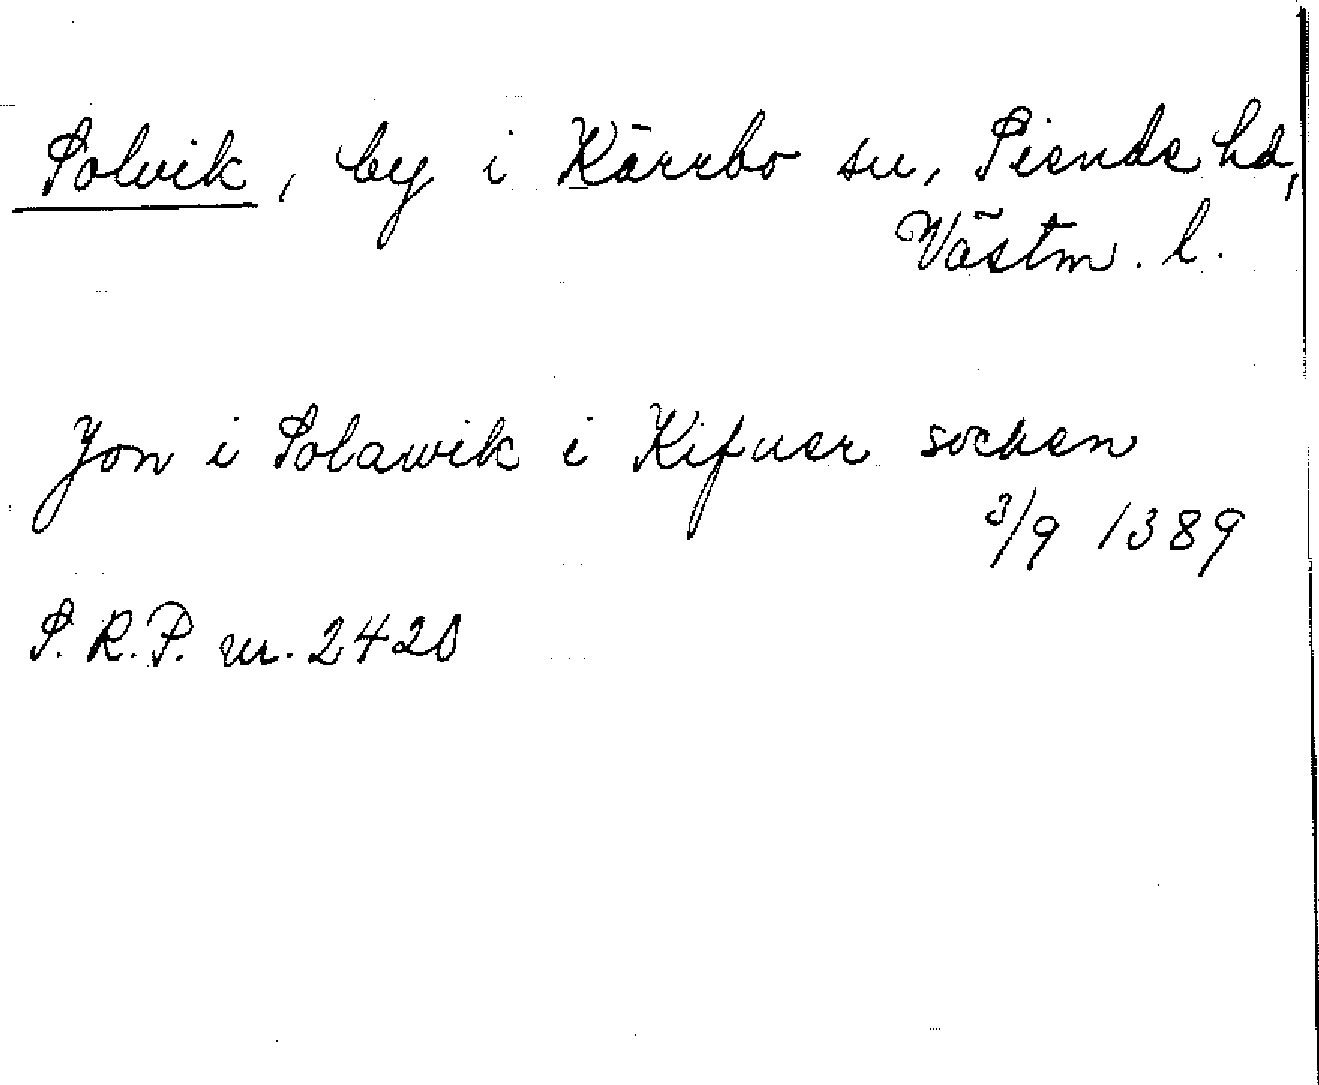 Solvik, by i Kärrbo sn, Siende hd,
Västm. l.
Jon i Solawik i Kifner socken
3/9 1389
S. R. P. nr. 2420